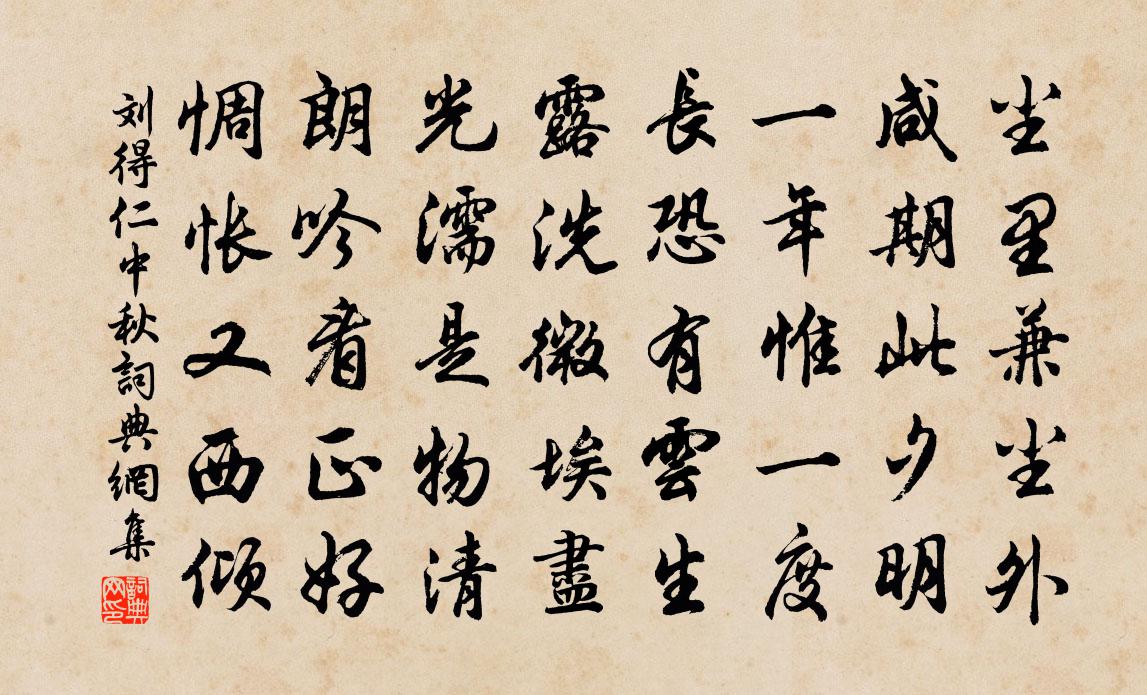 尘里兼尘外
咸期此夕明
一年惟一度
長恐有雲生
露洗微埃盡
光濡是物清
朗吟看正好
惆怅又西倾
刘得仁中秋詞典網集
詞典网印